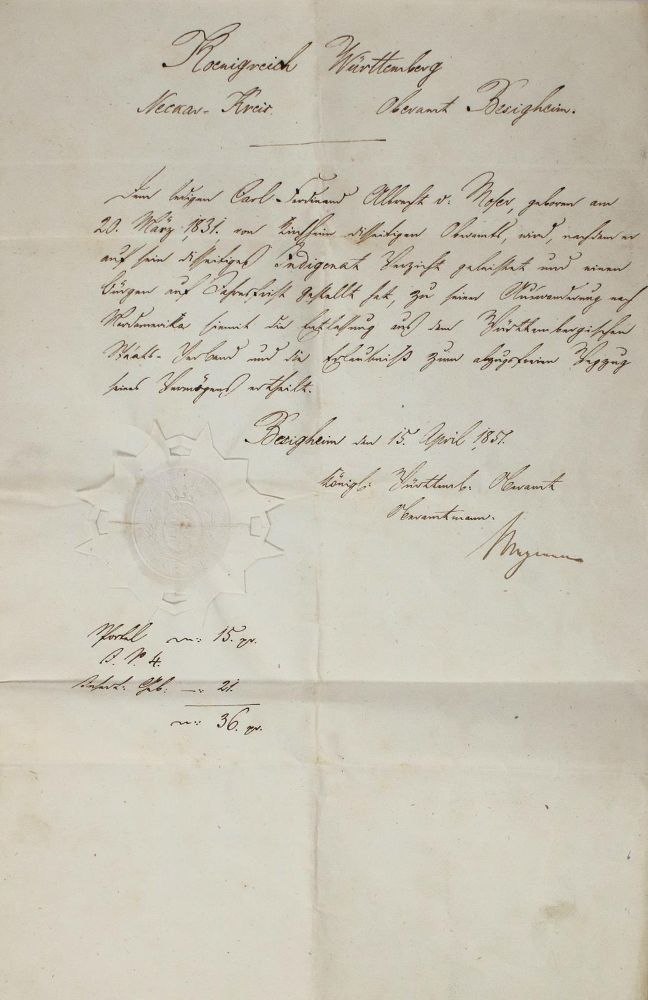 Koenigreich Württemberg
Neckar-Kreis. Oberamt Besigheim.
Dem ledigen Carl Ferdinand Albrecht v: Moser, geboren am
20. März 1831. von Kirchheim disseitigen Oberamts, wird, nachdem er
auf sein disseitiges Indigenat Verzicht geleistet und einen
Bürgen auf Jahresfrist gestellt hat, zu seiner Auswanderung nach
Nordamerika hiemit die Entlassung aus dem Württembergischen
Staats-Verband und die Erlaubniß zum abzugsfreien Wegzug
seines Vermögens ertheilt.
Besigheim den 15. April 1851.
Königl: Württemb: Oberamt
Oberamtmann.
Sportel 15. xr.
4.
Geb. 21.
36. xr.